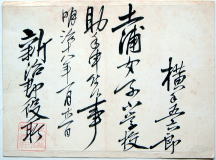 横■五郎
土浦女子小学校
助手申付候事
明治十八年一月廿二日
新治郡役所